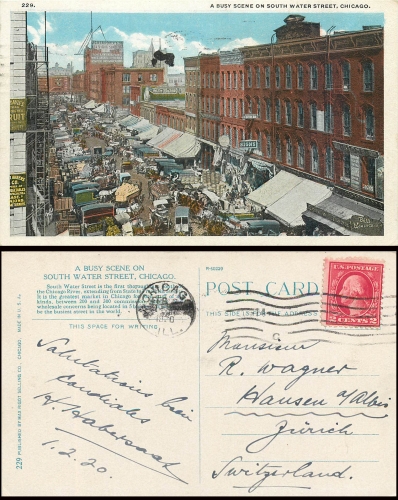 229.
A BUSY SCENE ON SOUTH WATER STREET, CHICAGO.
FRUIT
A BUSY SCENE ON
SOUTH WATER STREET, CHICAGO.
South Water Street is the first
the Chicago River, extending from State
It is the greatest market in Chicago for
kinds, between 200 and 300 commission
wholesale concerns being located in
be the busiest street in the world.
THIS SPACE FOR WRITING
Salutations bien
cordiales
H. Habersaat
1.2.20.
229 PUBLISHED BY MAX RIGOT SELLING CO., CHICAGO. MADE IN U.S.A.
CHICAGO
ILL.
POST CARD
THIS SIDE THE ADDRESS
U.S. POSTAGE
2 CENTS 2
Monsieur
R. Wagner
Hausen a/Albis
Zürich
Switzerland.